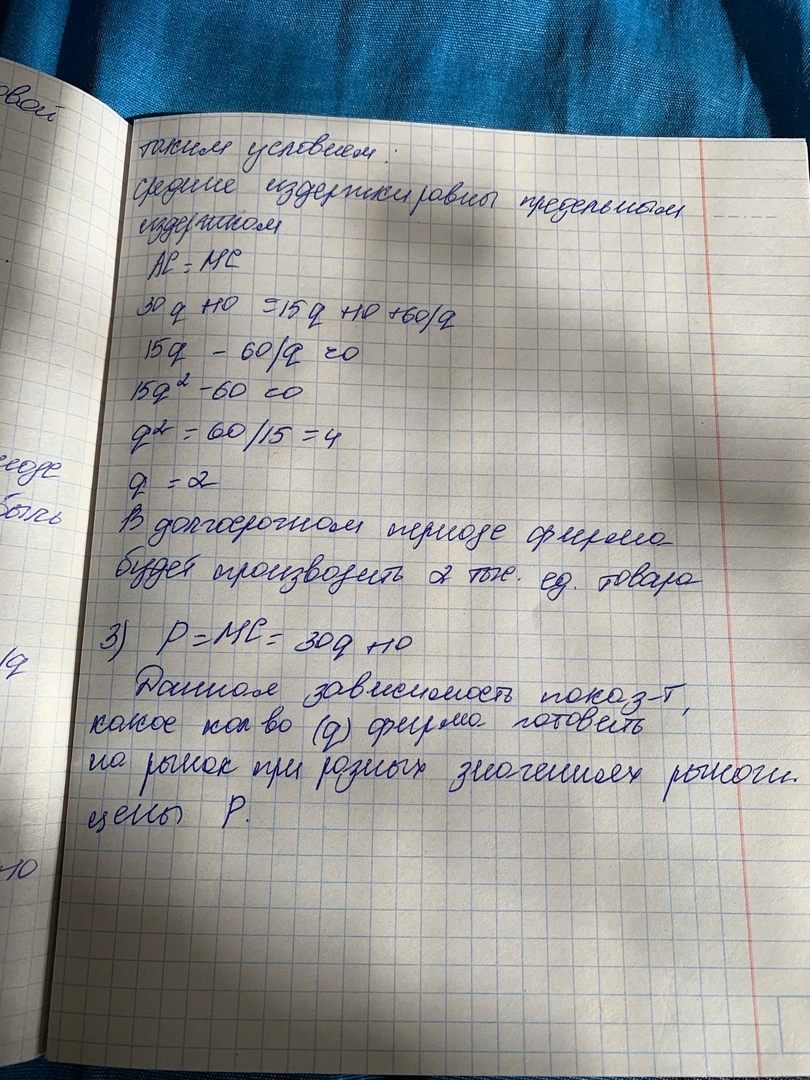 овой
таким условием:
средние издержки равны предельным
издержкам
AC = MC
30q +10 = 15q +10 +60/q
15q - 60/q = 0
15q² - 60 = 0
q² = 60/15 = 4
q = 2
В долгосрочном периоде фирма
будет производить 2 тыс. ед. товара
3) P = MC = 30q +10
Данная зависимость показ-т,
какое кол во (q) фирма готовить
на рынок при разных значениях рыночн.
цены P.
иоде
быль
/q
+10